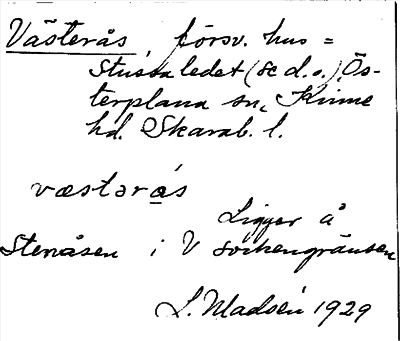 Västerås, försv. hus =
Stussaledet (se d.o.), Ös-
terplana sn, Kinne
hd. Skarab. l.
væstərås
Ligger å
Stenåsen i V sockengränsen
L. Madsén 1929